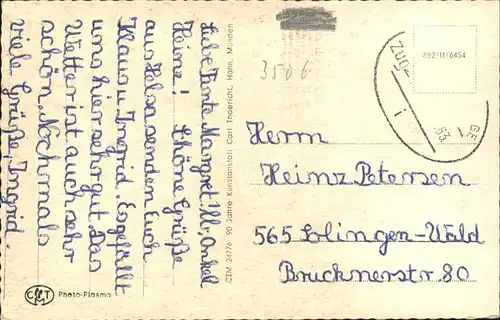 Liebe Tante Margret! Ub. Onkel
Heinz! Schöne Grüße
aus Helsa senden Euch
Klaus u. Ingrid. Es gefällt
uns hier sehr gut. Das
Wetter ist auch sehr
schön. Nochmals
viele Grüße, Ingrid.
CTM 24/776 90 Jahre Kunstanstalt Carl Thoericht, Hann. Münden
3506
862/11/6454
ZUG
Herrn
Heinz Petersen
565 Solingen-Wald
Brucknerstr. 80
CT Photo-Plasma